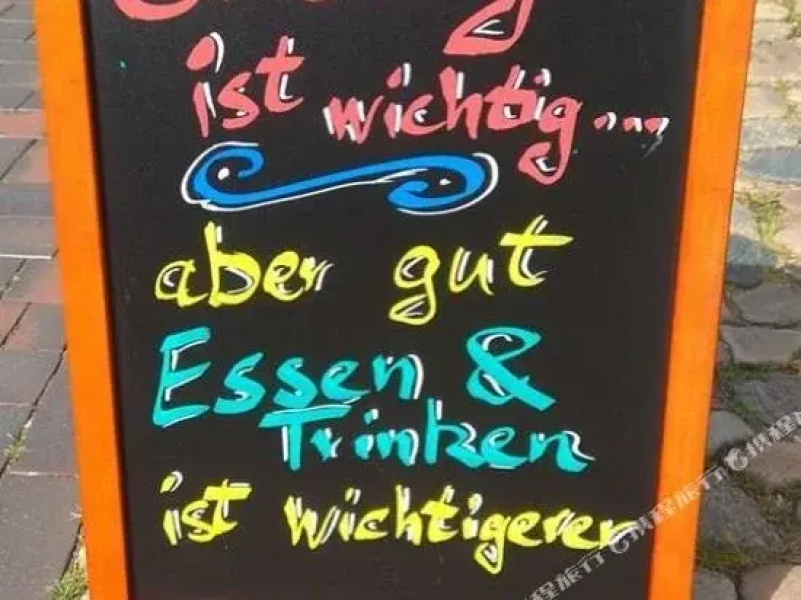 ist wichtig...
aber gut
Essen &
Trinken
ist wichtigerer
携程旅行
携程旅行